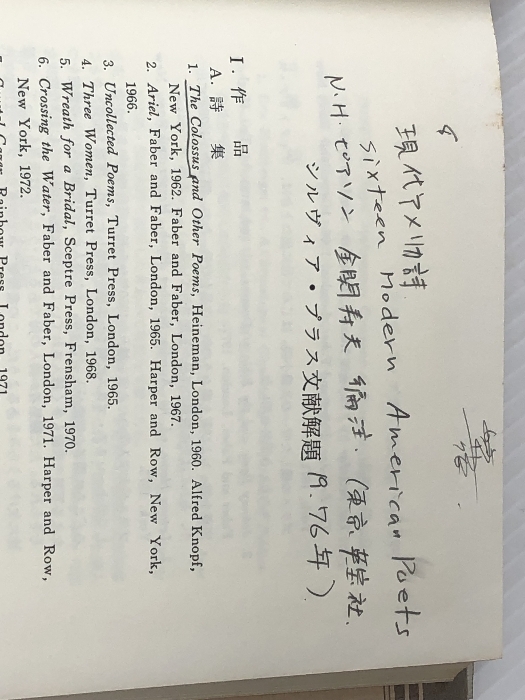 8
現代アメリカ詩
Sixteen Modern American Poets
N.H. ピアソン 金関寿夫 編注. (東京, 英宝社,
シルヴィア・プラス文献解題 19.76年)
I. 作 品
A. 詩 集
1. The Colossus and Other Poems, Heineman, London, 1960. Alfred Knopf,
New York, 1962. Faber and Faber, London, 1967.
2. Ariel, Faber and Faber, London, 1965. Harper and Row, New York,
1966.
3. Uncollected Poems, Turret Press, London, 1965.
4. Three Women, Turret Press, London, 1968.
5. Wreath for a Bridal, Sceptre Press, Frensham, 1970.
6. Crossing the Water, Faber and Faber, London, 1971. Harper and Row,
New York, 1972.
Rainbow Press, London, 1971